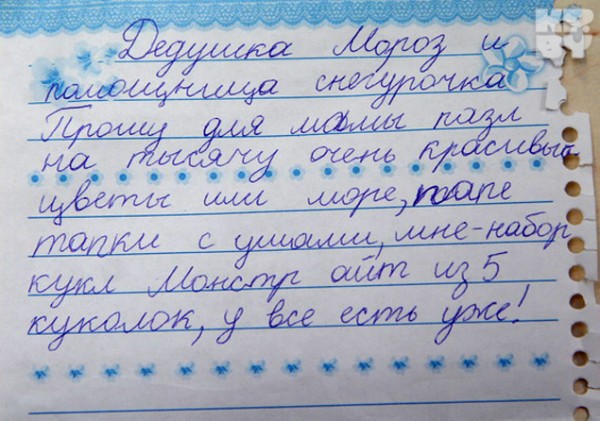 Дедушка Мороз и
помощница снегурочка
Прошу для мамы пазл
на тысячу очень красивый
цветы или море, папе
тапки с ушами, мне-набор
кукл Монстр айт из 5
куколок, у все есть уже!
KP
BY